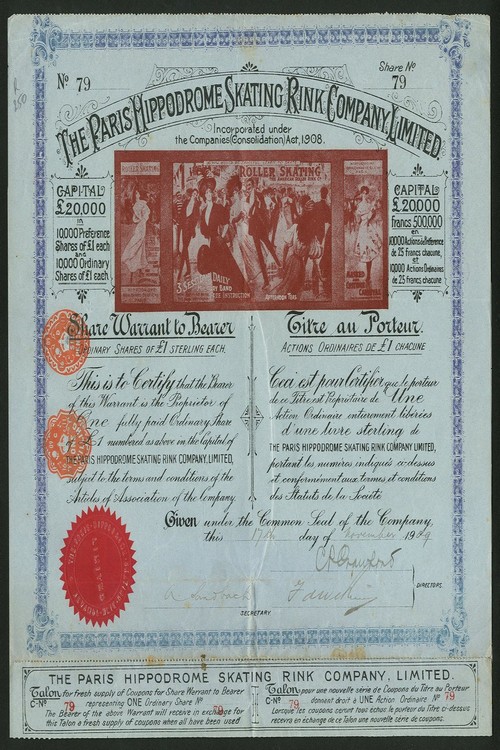 Nº 79
Share Nº
79
THE PARIS HIPPODROME SKATING RINK COMPANY, LIMITED
Incorporated under
the Companies (Consolidation) Act, 1908.
CAPITAL
£20,000
in
10,000 Preference
Shares of £1 each
and
10,000 Ordinary
Shares of £1 each
ROLLER SKATING
3 DAILY
BAND
INSTRUCTION
CAPITAL
£20,000
Francs 500,000
en
10000 Actions de Préférence
de 25 francs chacune,
et
10000 Actions Ordinaires
de 25 francs chacune
Share Warrant to Bearer
ORDINARY SHARES OF £1 STERLING EACH.
This is to Certify that the Bearer
of this Warrant is the Proprietor of
One fully paid Ordinary Share
of £1 numbered as above in the capital of
THE PARIS HIPPODROME SKATING RINK COMPANY, LIMITED,
subject to the terms and conditions of the
Articles of Association of the Company.
Titre au Porteur.
ACTIONS ORDINAIRES DE £1 CHACUNE
Ceci est pour Certifier que le porteur
de ce Titre est Propriétaire de Une
Action Ordinaire entièrement libérées
d'une livre sterling de
THE PARIS HIPPODROME SKATING RINK COMPANY LIMITED,
portant les numéros indiqués ci-dessus
et conformément aux termes et conditions
des Statuts de la Société
Given under the Common Seal of the Company,
this 17th day of November 1909
DIRECTORS.
SECRETARY.
THE PARIS HIPPODROME SKATING RINK COMPANY, LIMITED.
Talon for fresh supply of Coupons for Share Warrant to Bearer
C-Nº 79 representing ONE Ordinary Share Nº 79
The Bearer of the above Warrant will receive in exchange for
this Talon a fresh supply of coupons when all have been used
Talon pour une nouvelle série de Coupons du Titre au Porteur
C-Nº 79 donnant droit à UNE Action Ordinaire. Nº 79
Lorsque les coupons seront tous échus le porteur du Titre ci-dessus
recevra en échange de ce Talon une nouvelle série de coupons.